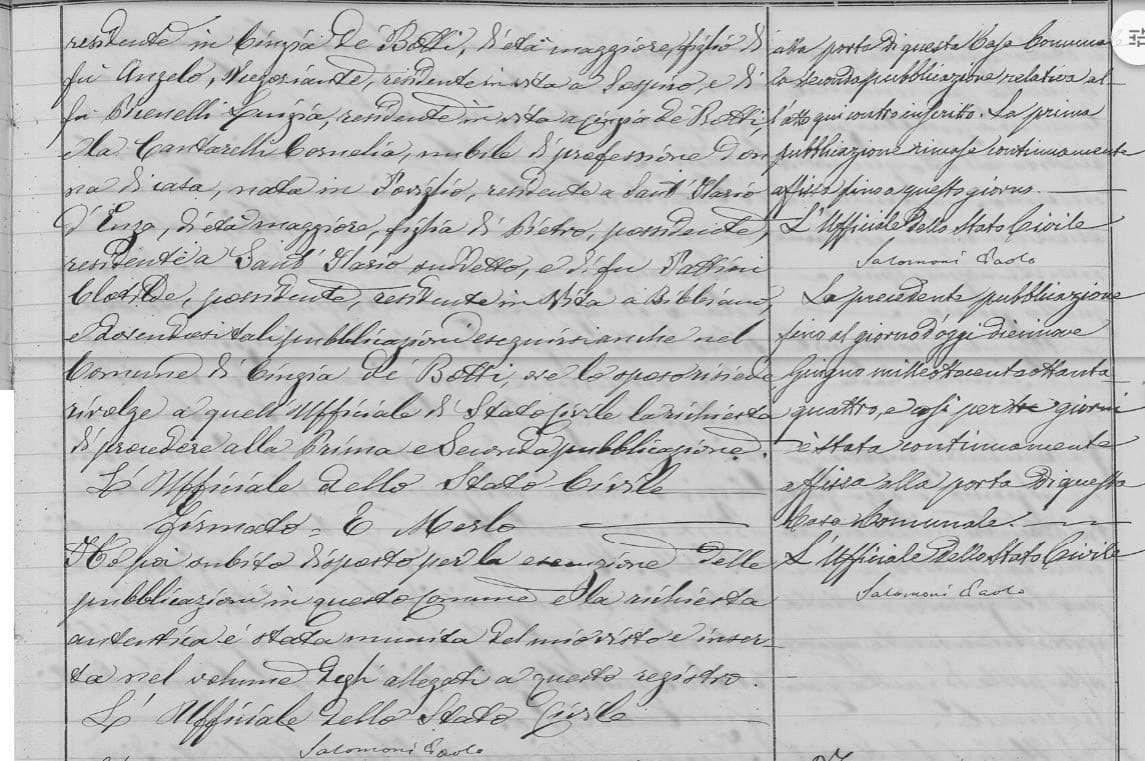 residente in Cinzia de Botti, di età maggiore, figlio di
fu Angelo, Negoziante, residente in vita a Sospiro, e di
fu Cinzia, residente in vita a Cinzia de Botti,
e la Cantarelli Cornelia, nubile di professione don
na di casa, nata in Poviglio, residente a Sant' Ilario
d'Enza, di età maggiore, figlia di Pietro, possidente,
residente a Sant' Ilario suddetto, e di fu Pattini
Clotilde, possidente, residente in Vita a Bibbiano,
e dovendosi tali pubblicazioni eseguirsi anche nel
Comune di Cinzia de Botti, ove lo sposo risiede
rivolge a quell' Ufficiale di Stato Civile la richiesta
di procedere alla Prima e Seconda pubblicazione.
L' Ufficiale dello Stato Civile
Firmato = E Merlo
Ho poi subito disposto per la esecuzione delle
pubblicazioni in questo Comune e la richiesta
autentica è stata munita del mio visto e inser-
ta nel volume degli allegati a questo registro.
L' Ufficiale dello Stato Civile
Salomoni Paolo
alla porta di questa Casa Comunale
la seconda pubblicazione relativa al
l'atto qui contro inscritto. La prima
pubblicazione rimase continuamente
affissa fino a questo giorno.
L' Ufficiale dello Stato Civile
Salomoni Paolo
La precedente pubblicazione
fino al giorno d'oggi diecinove
Giugno milleottocentoottanta
quattro, e così per tre giorni
è stata continuamente
affissa alla porta di questa
Casa Comunale.
L' Ufficiale dello Stato Civile
Salomoni Paolo